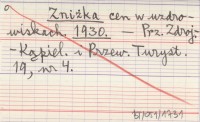 Zniżka cen w uzdro-
wiskach. 1930. — Prz. Zdroj.-
-Kąpiel. i Przew. Turyst.
19, nr 4.